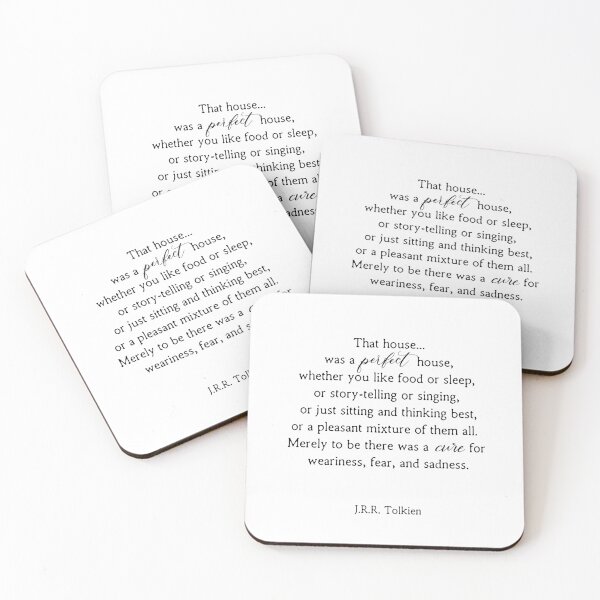 That house...
was a perfect house,
whether you like food or sleep,
or story-telling or singing,
or just sitting and thinking best,
of them all.
a cure
sadness
That house...
was a perfect house,
whether you like food or sleep,
or story-telling or singing,
or just sitting and thinking best,
or a pleasant mixture of them all.
Merely to be there was a cure for
weariness, fear, and sadness.
That house...
was a perfect house,
whether you like food or sleep,
or story-telling or singing,
or just sitting and thinking best,
or a pleasant mixture of them all.
Merely to be there was a for
weariness, fear, and
J.R.R.
That house...
was a perfect house,
whether you like food or sleep,
or story-telling or singing,
or just sitting and thinking best,
or a pleasant mixture of them all.
Merely to be there was a cure for
weariness, fear, and sadness.
J.R.R. Tolkien